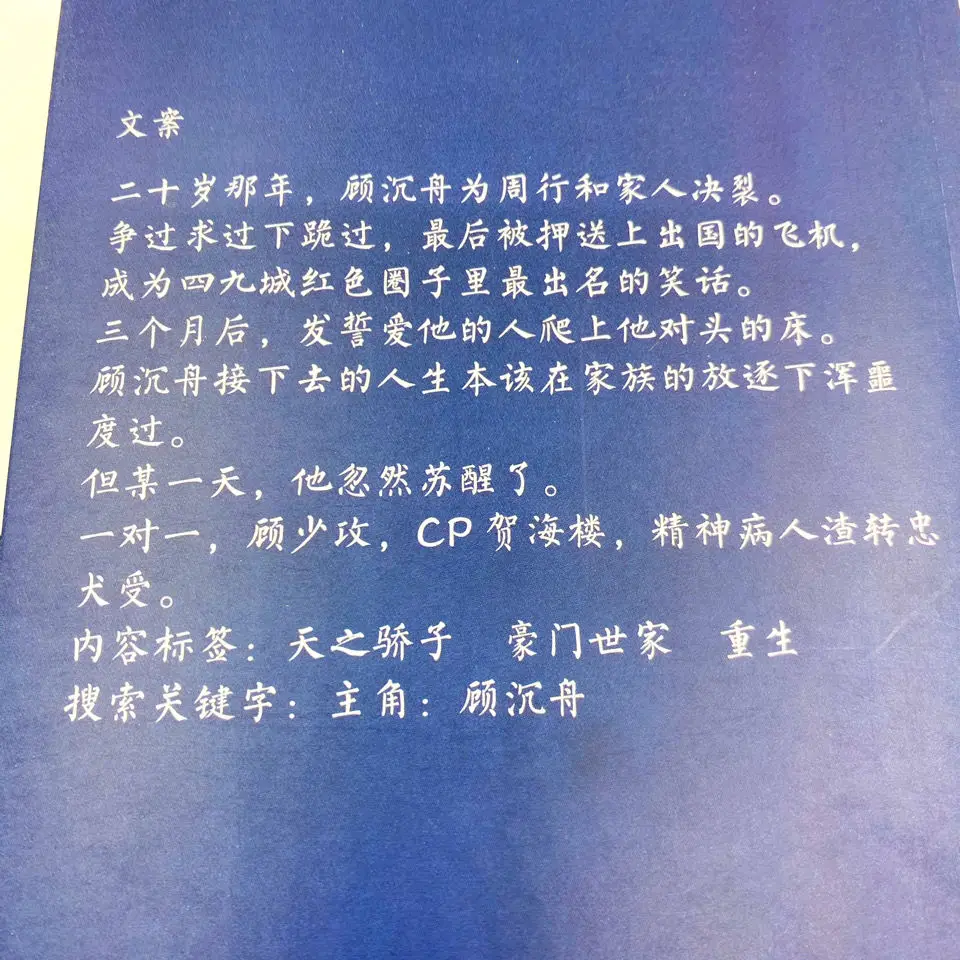 文案
二十岁那年，顾沉舟为周行和家人决裂。
争过求过下跪过，最后被押送上出国的飞机，
成为四九城红色圈子里最出名的笑话。
三个月后，发誓爱他的人爬上他对头的床。
顾沉舟接下去的人生本该在家族的放逐下浑噩
度过。
但某一天，他忽然苏醒了。
一对一，顾少攻，CP 贺海楼，精神病人渣转忠
犬受。
内容标签：天之骄子 豪门世家 重生
搜索关键字：主角：顾沉舟